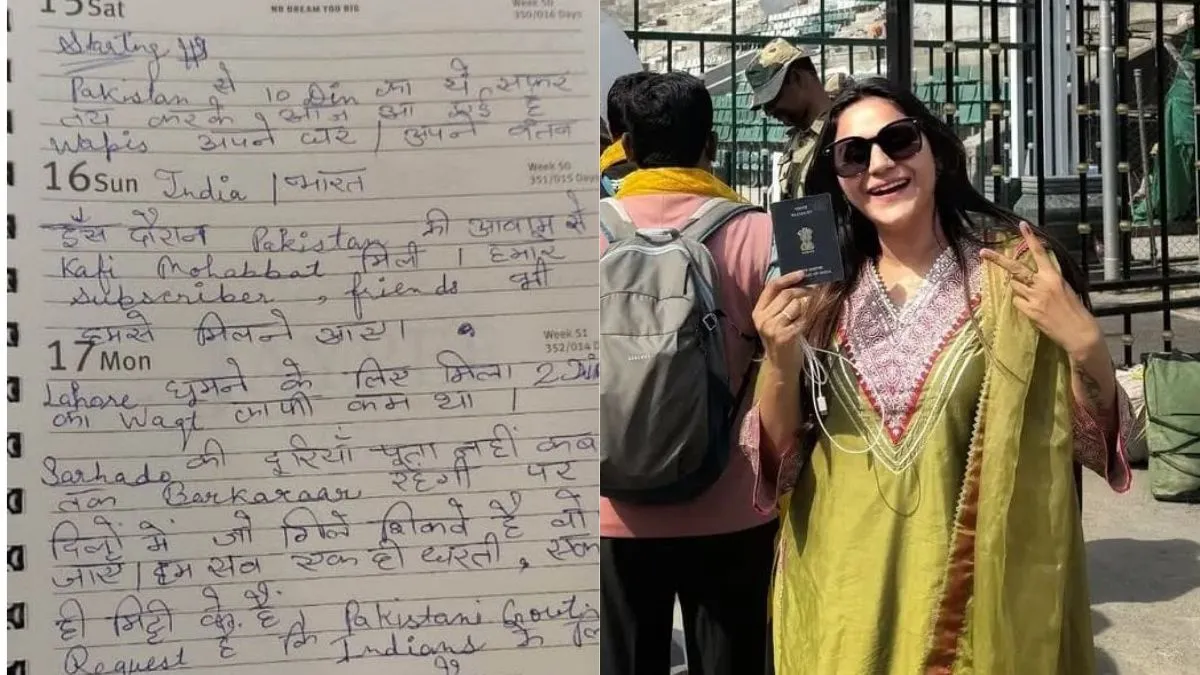 15 Sat
NO DREAM TOO BIG
Week 50
350/016 Days
Starting
Pakistan से 10 Din का ये सफर
तय करके आज आ गई है
Wapis अपने घर / अपने वतन
16 Sun
Week 50
351/015 Days
India / भारत
इस दौरान Pakistan की आवाम से
Kafi Mohabbat मिली । हमारे
subscriber, friends भी
हमसे मिलने आए।
17 Mon
Week 51
352/014 D
Lahore घूमने के लिए मिला 2 Din
का Waqt काफी कम था ।
Sarhado की दूरियाँ पता नहीं कब
तक Barkaraar रहेगी पर
दिलों में जो गिले शिकवे है वो
जाए । हम सब एक ही धरती, एक
ही मिट्टी के है
Pakistani Govt
Request है कि Indians के